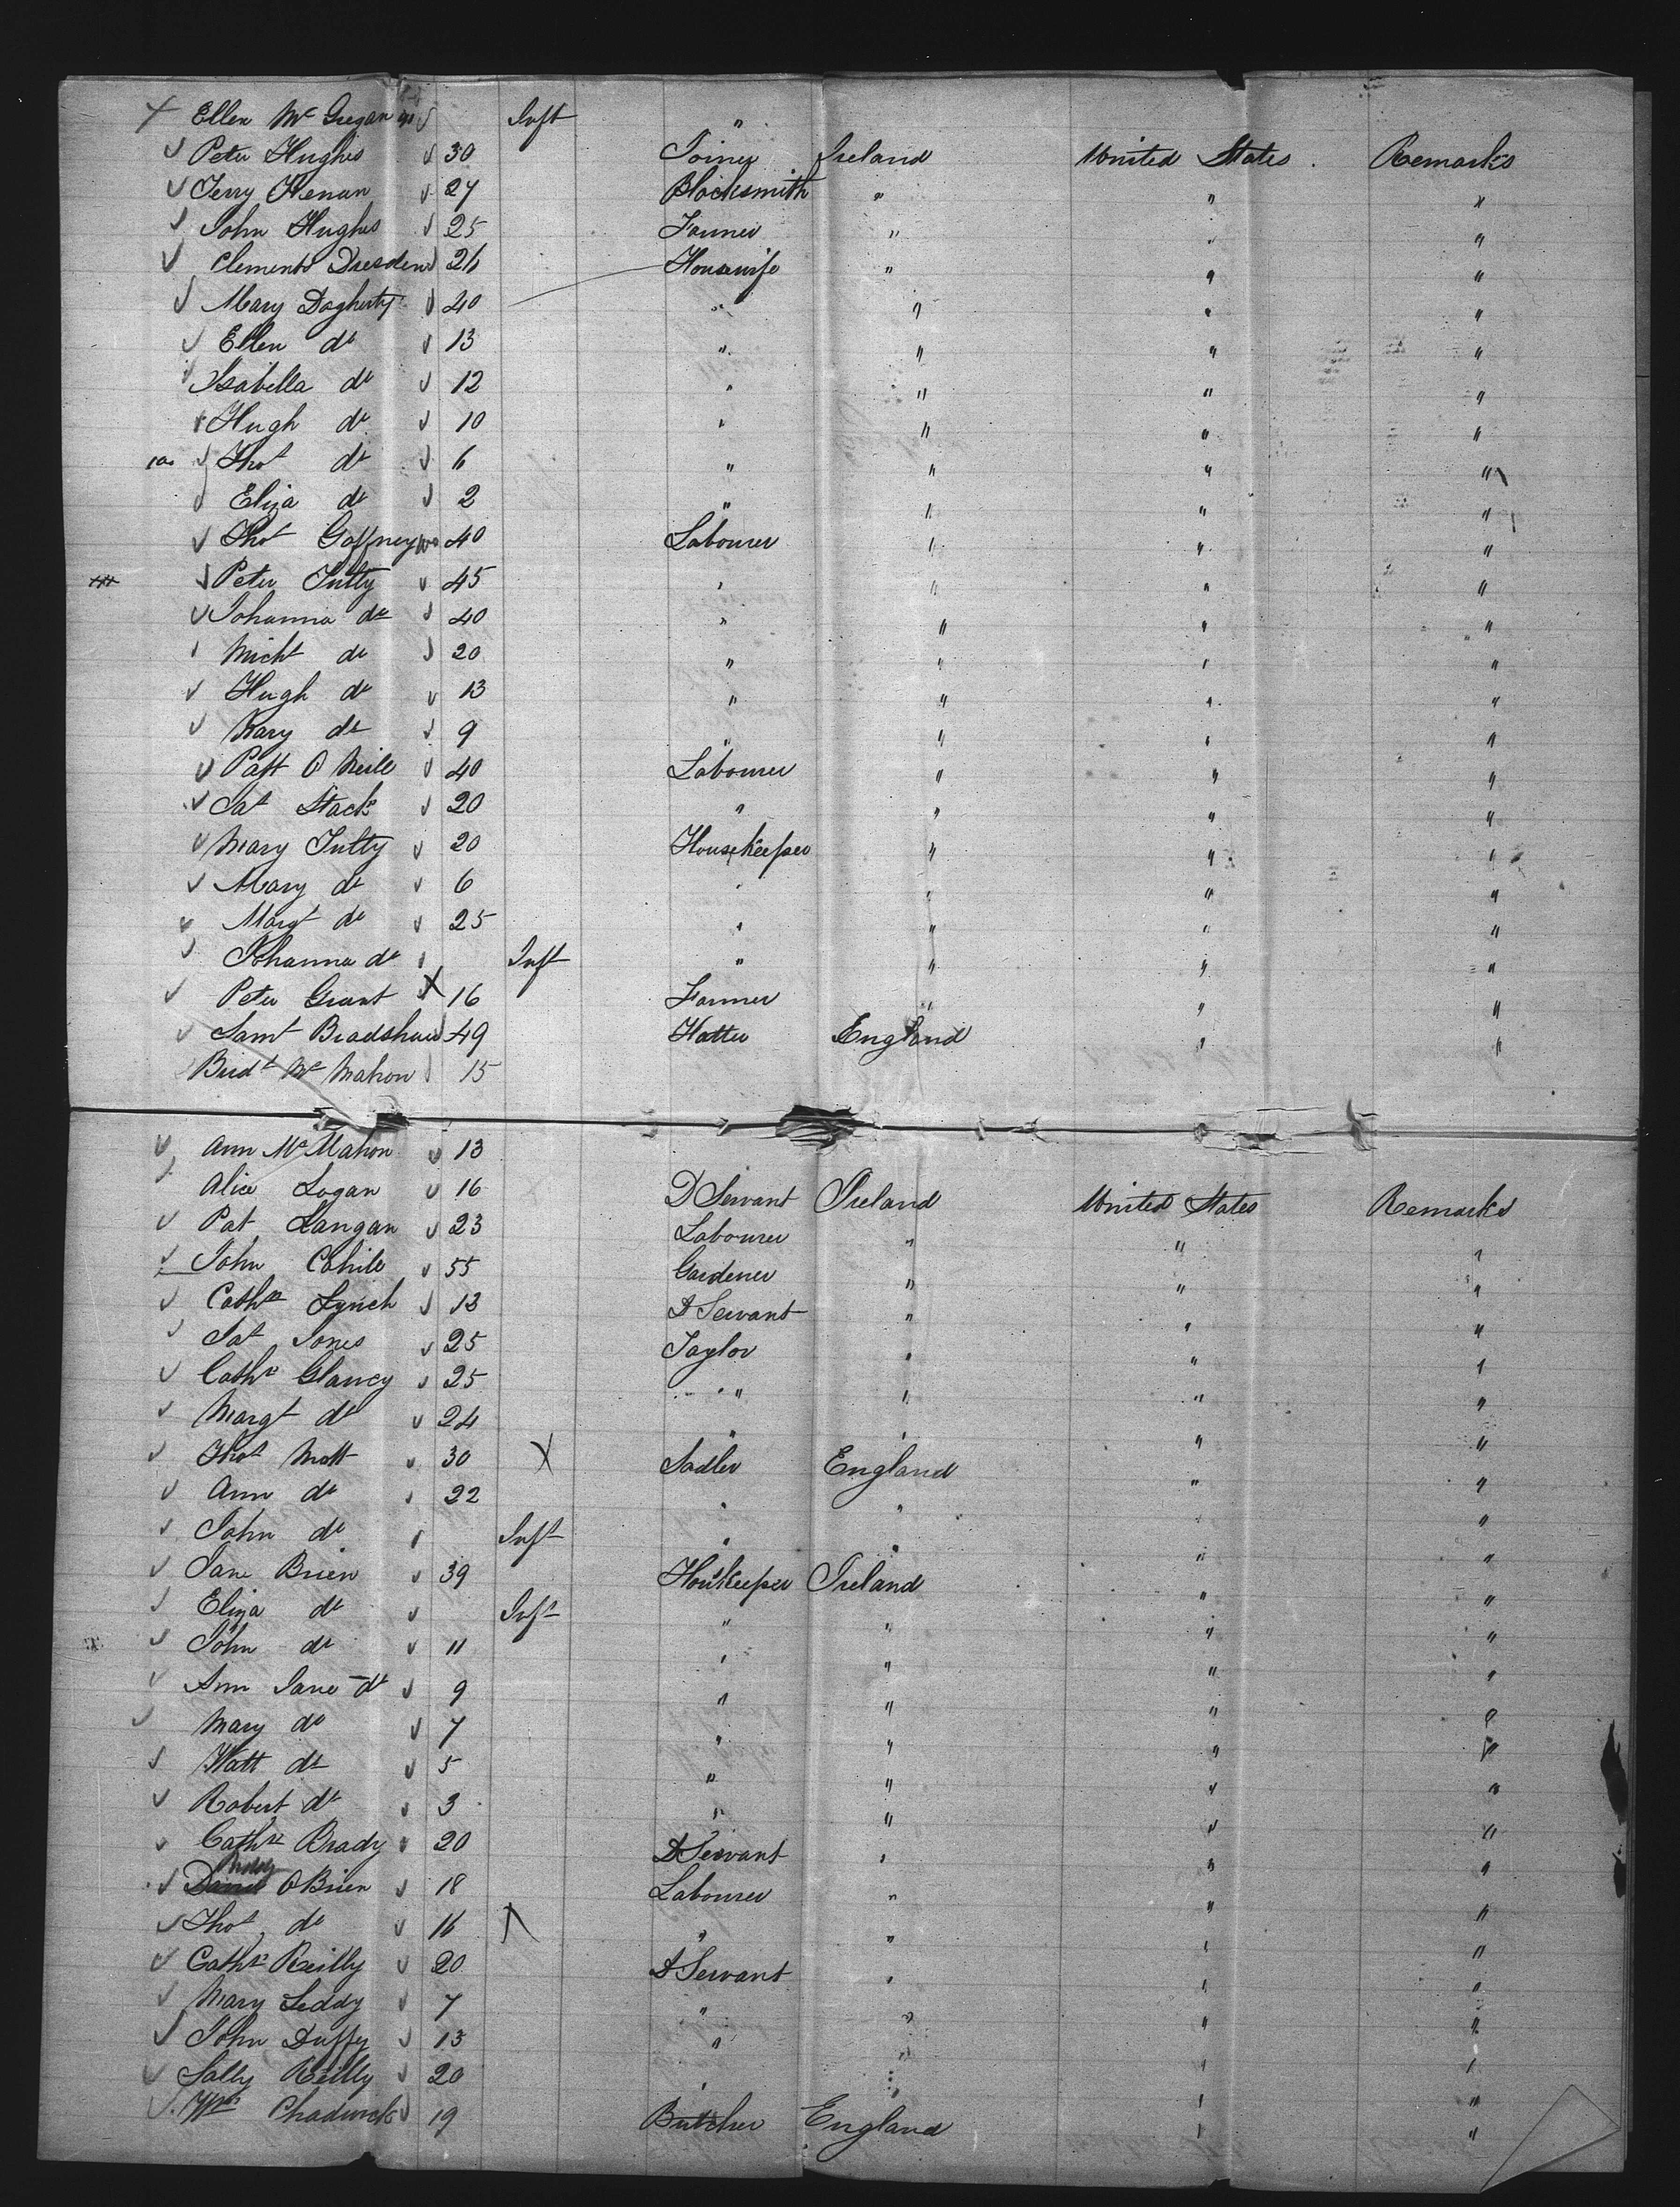 Ellen Mc Gregan Inft "
Peter Hughes 30 Joiner Ireland United States Remarks
Terry Henan 27 Blacksmith " " "
John Hughes 25 Farmer " " "
Clements Dresden 26 Housewife " " "
Mary Dogherty 40 " " " "
Ellen do 13 " " " "
Isabella do 12 " " " "
Hugh do 10 " " " "
Thos do 6 " " " "
Eliza do 2 " " " "
Thos Gaffney 40 Labourer " " "
Peter Tutty 45 " " " "
Johanna do 40 " " " "
Michl do 20 " " " "
Hugh do 13 " " " "
Mary do 9 " " " "
Patt O Neill 40 Labourer " " "
Jas Stack 20 " " " "
Mary Tutty 20 Housekeeper " " "
Mary do 6 " " " "
Margt do 25 " " " "
Johanna do Inft " " " "
Peter Grant 16 Farmer " " "
Saml Bradshaw 49 Hatter England " "
Bridt Mc Mahon 15
Ann Mc Mahon 13
Alice Logan 16 D Servant Ireland United States Remarks
Pat Langan 23 Labourer " " "
John Cahill 55 Gardener " " "
Cathe Lynch 13 D Servant " " "
Jas Jones 25 Taylor " " "
Cathe Glancy 25 " " " "
Margt do 24 " " " "
Thos Mott 30 Sadler England " "
Ann do 22 " " " "
John do Inft " " " "
Jane Brien 39 Houskeeper Ireland " "
Eliza do Inft " " " "
John do 11 " " " "
Ann Jane do 9 " " " "
Mary do 7 " " " "
Watt do 5 " " " "
Robert do 3 " " " "
Cathe Brady 20 D Servant " " "
O Brien 18 Labourer " " "
Thos do 16 " " " "
Cathe Reilly 20 D Servant " " "
Mary Leddy 7 " " " "
John Duffy 13 " " " "
Sally Reilly 20 " " " "
Wm Chadwick 19 Butcher England " "